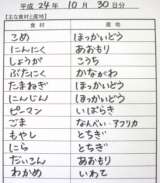 平成 24年 10月 30日分
【主な食材と産地】
食材 産地
こめ ほっかいどう
にんにく あおもり
しょうが こうち
ぶたにく かながわ
たまねぎ ほっかいどう
にんじん ほっかいどう
ピーマン いばらき
ごま なんべい・アフリカ
もやし とちぎ
にら とちぎ
だいこん あおもり
わかめ いわて